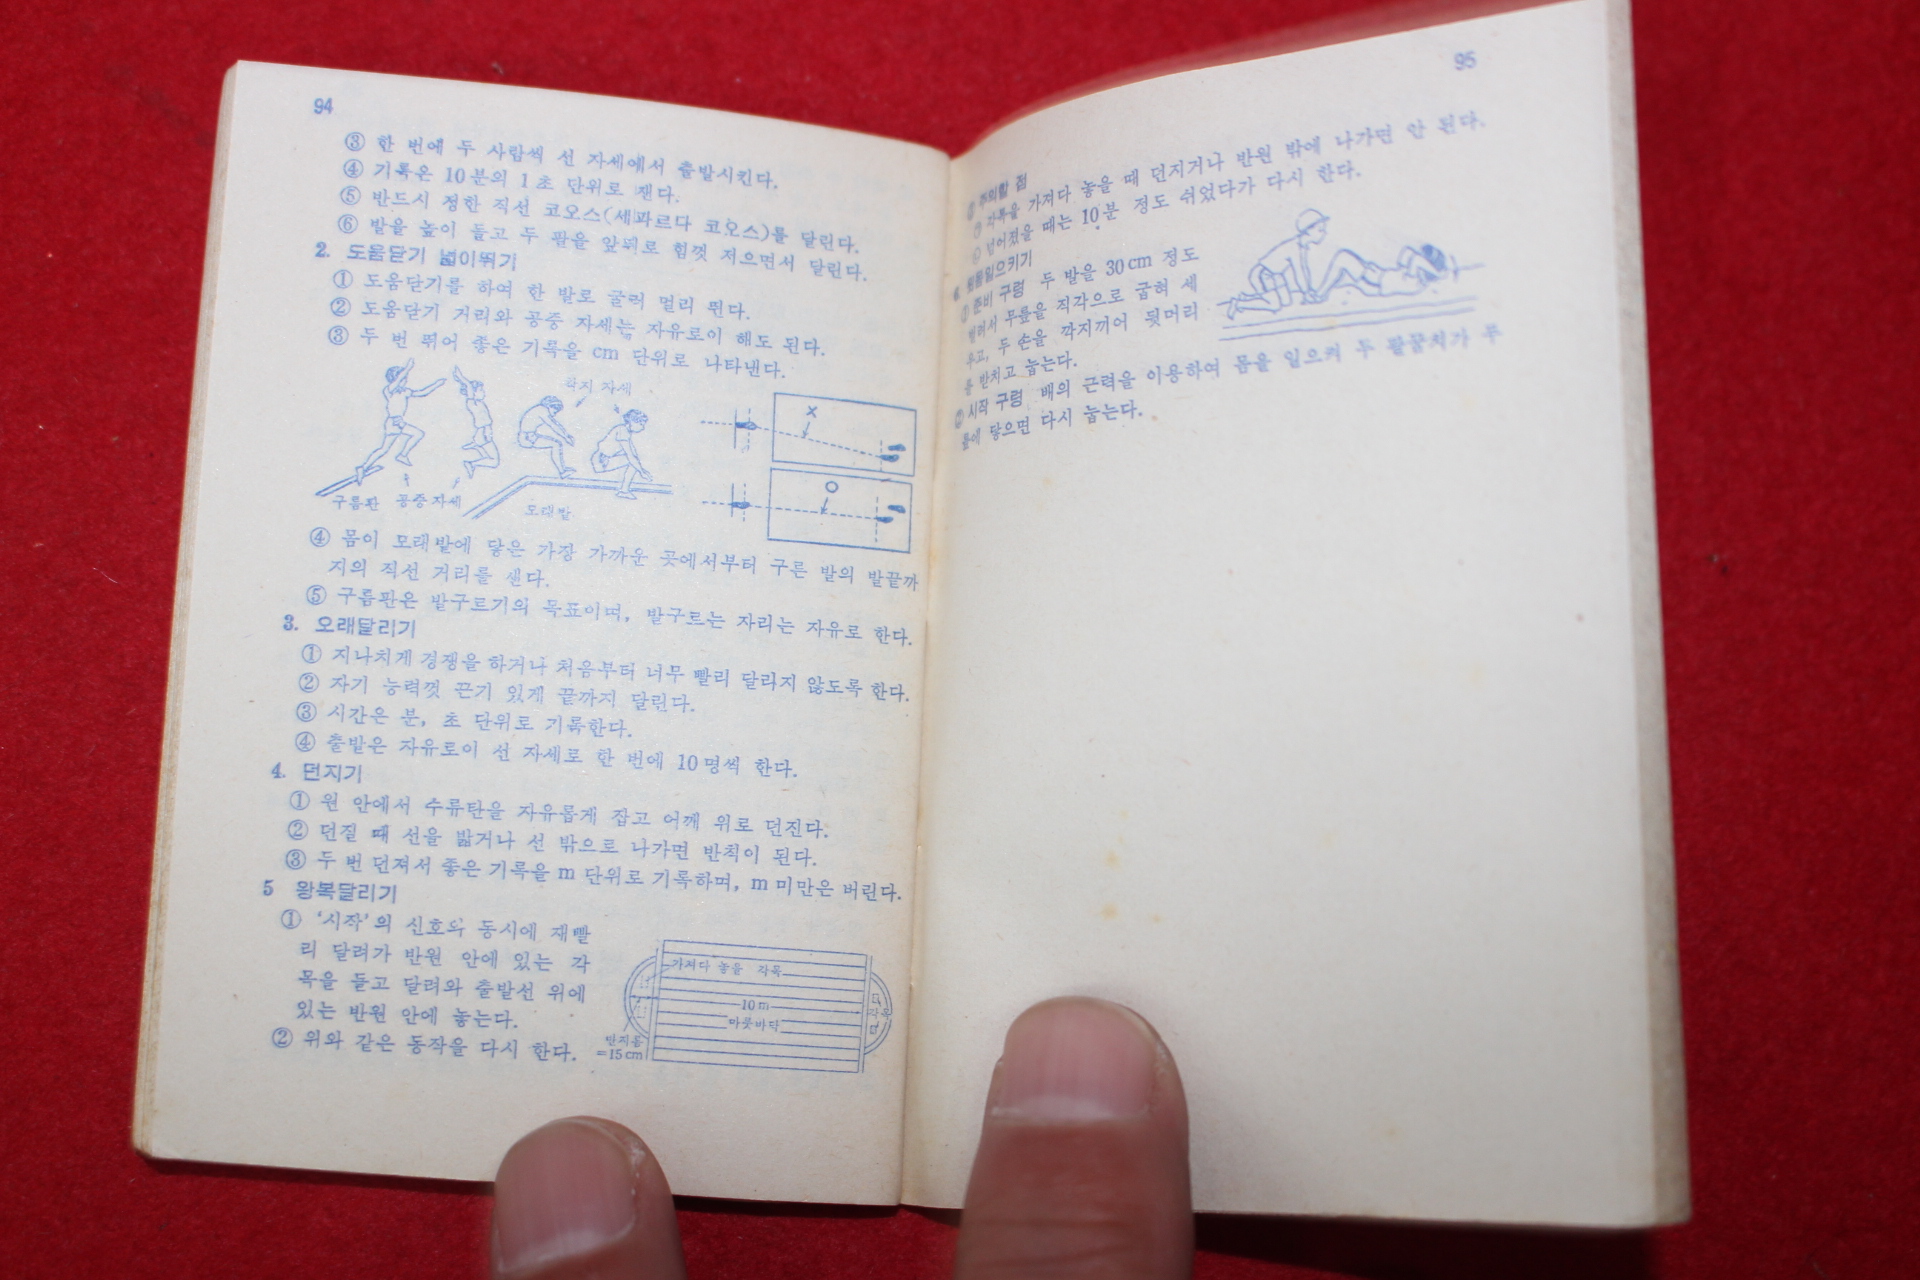 94
③ 한 번에 두 사람씩 선 자세에서 출발시킨다.
④ 기록은 10분의 1초 단위로 잰다.
⑤ 반드시 정한 직선 코오스(세파르다 코오스)를 달린다.
⑥ 발을 높이 들고 두 팔을 앞뒤로 힘껏 저으면서 달린다.
2. 도움닫기 넓이뛰기
① 도움닫기를 하여 한 발로 굴러 멀리 뛴다.
② 도움닫기 거리와 공중 자세는 자유로이 해도 된다.
③ 두 번 뛰어 좋은 기록을 cm 단위로 나타낸다.
착지 자세
×
○
구름판 공중 자세
모래밭
④ 몸이 모래밭에 닿은 가장 가까운 곳에서부터 구른 발의 발끝까
지의 직선 거리를 잰다.
⑤ 구름판은 발구르기의 목표이며, 발구르는 자리는 자유로 한다.
3. 오래달리기
① 지나치게 경쟁을 하거나 처음부터 너무 빨리 달리지 않도록 한다.
② 자기 능력껏 끈기 있게 끝까지 달린다.
③ 시간은 분, 초 단위로 기록한다.
④ 출발은 자유로이 선 자세로 한 번에 10명씩 한다.
4. 던지기
① 원 안에서 수류탄을 자유롭게 잡고 어깨 위로 던진다.
② 던질 때 선을 밟거나 선 밖으로 나가면 반칙이 된다.
③ 두 번 던져서 좋은 기록을 m 단위로 기록하며, m 미만은 버린다.
5 왕복달리기
① '시작'의 신호와 동시에 재빨
리 달려가 반원 안에 있는 각
목을 들고 달려와 출발선 위에
있는 반원 안에 놓는다.
② 위와 같은 동작을 다시 한다.
가져다 놓을 각목
10m
마룻바닥
반지름
=15cm
각목
95
주의할 점
각목을 가져다 놓을 때 던지거나 반원 밖에 나가면 안 된다.
넘어졌을 때는 10분 정도 쉬었다가 다시 한다.
윗몸일으키기
① 준비 구령 두 발을 30cm 정도
벌려서 무릎을 직각으로 굽혀 세
우고, 두 손을 깍지끼어 뒷머리
를 받치고 눕는다.
② 시작 구령 배의 근력을 이용하여 몸을 일으켜 두 팔꿈치가 무
릎에 닿으면 다시 눕는다.